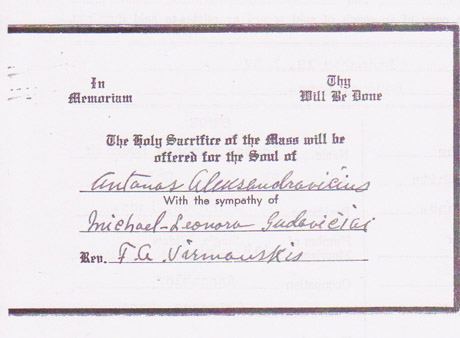 In
Memoriam
Thy
Will Be Done
The Holy Sacrifice of the Mass will be
offered for the Soul of
Antanas Aleksandravičius
With the sympathy of
Michael-Leonora Gudavičiai
Rev. F. A. Virmauskis